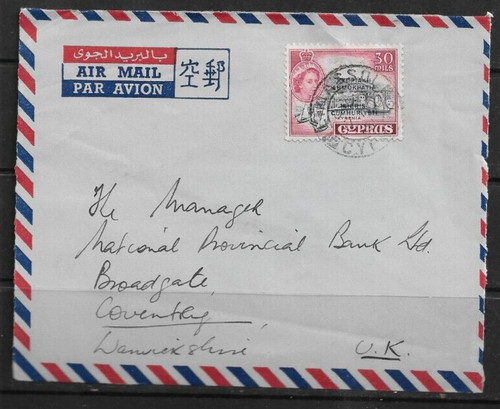 بالبريد الجوى
AIR MAIL
PAR AVION
空郵
30
MILS
KYRENIA
CYPRUS
The Manager
National Provincial Bank Ltd.
Broadgate,
Coventry,
Warwickshire
U.K.